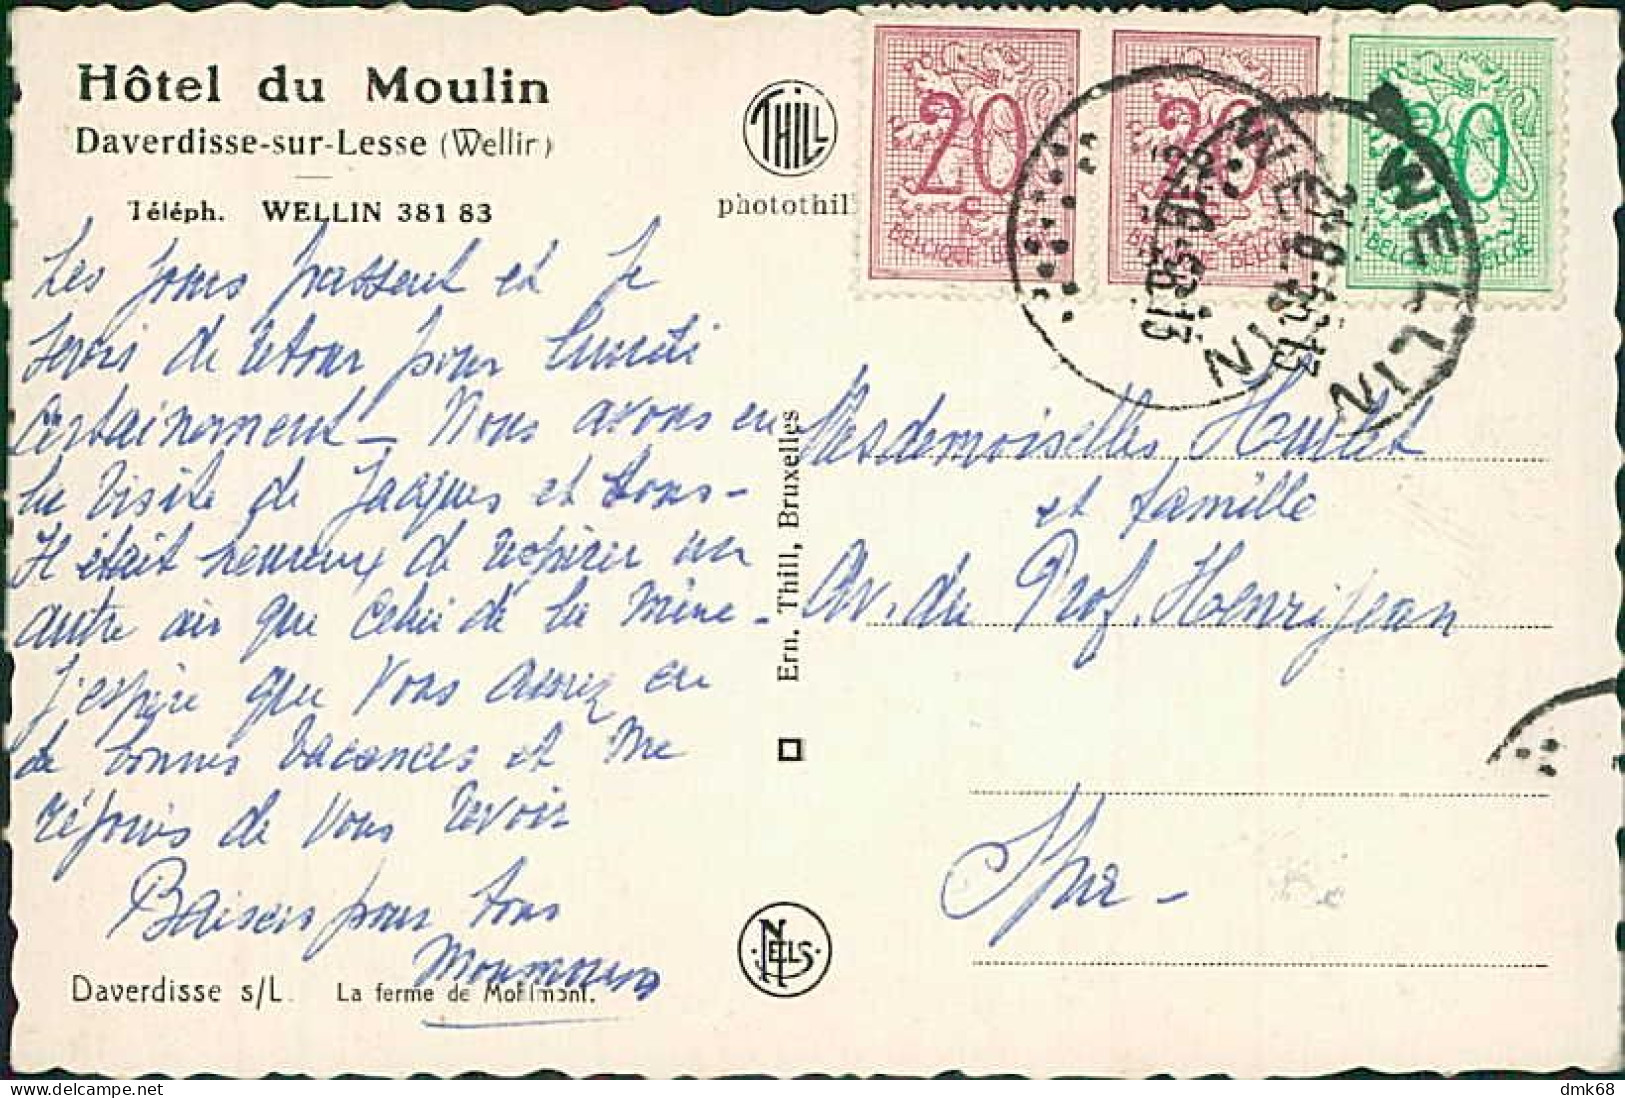 Hôtel du Moulin
Daverdisse-sur-Lesse (Wellin)
Téléph. WELLIN 381 83
THILL
photothill
20
BELGIQUE BELGIE
20
BELGIQUE BELGIE
20
BELGIQUE BELGIE
WELLIN
WELLIN
Les jours passent et je
serai de retour pour
certainement – Nous avons eu
la visite de Jacques et tous –
Il était heureux de respirer un
autre air que celui de la mine –
J'espère que vous aurez eu
de bonnes vacances et me
réjouis de vous revoir
Baisers pour tous
Daverdisse s/L. La ferme de Mohimont.
Ern. Thill, Bruxelles
NELS
Mesdemoiselles
et famille
Av. du Prof. Henrijean
Spa –
dmk68